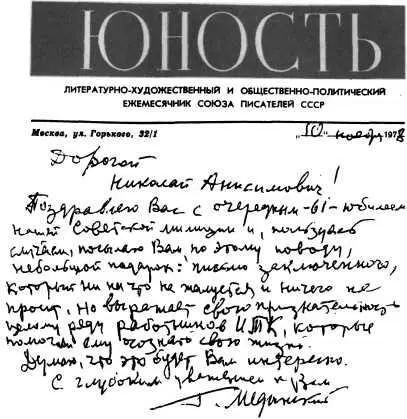 ЮНОСТЬ
ЛИТЕРАТУРНО-ХУДОЖЕСТВЕННЫЙ И ОБЩЕСТВЕННО-ПОЛИТИЧЕСКИЙ
ЕЖЕМЕСЯЧНИК СОЮЗА ПИСАТЕЛЕЙ СССР
Москва, ул. Горького, 32/1 „10" ноября 1978
Дорогой
Николай Анисимович!
Поздравляю Вас с очередным -61- юбилеем
нашей Советской милиции и, пользуясь
случаем, посылаю Вам по этому поводу,
небольшой подарок: письмо заключенного,
который ни на что не жалуется и ничего не
просит. Но выражает свою признательность
целому ряду работников ИТК, которые
помогли ему осознать свою жизнь.
Думаю, что это будет Вам интересно.
С глубоким уважением к Вам
Г. Медынский